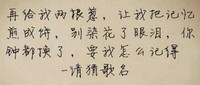 再给我两根葱，让我把记忆
煎成饼，别染花了眼泪，你
钟都换了，要我怎么记得
-请猜歌名